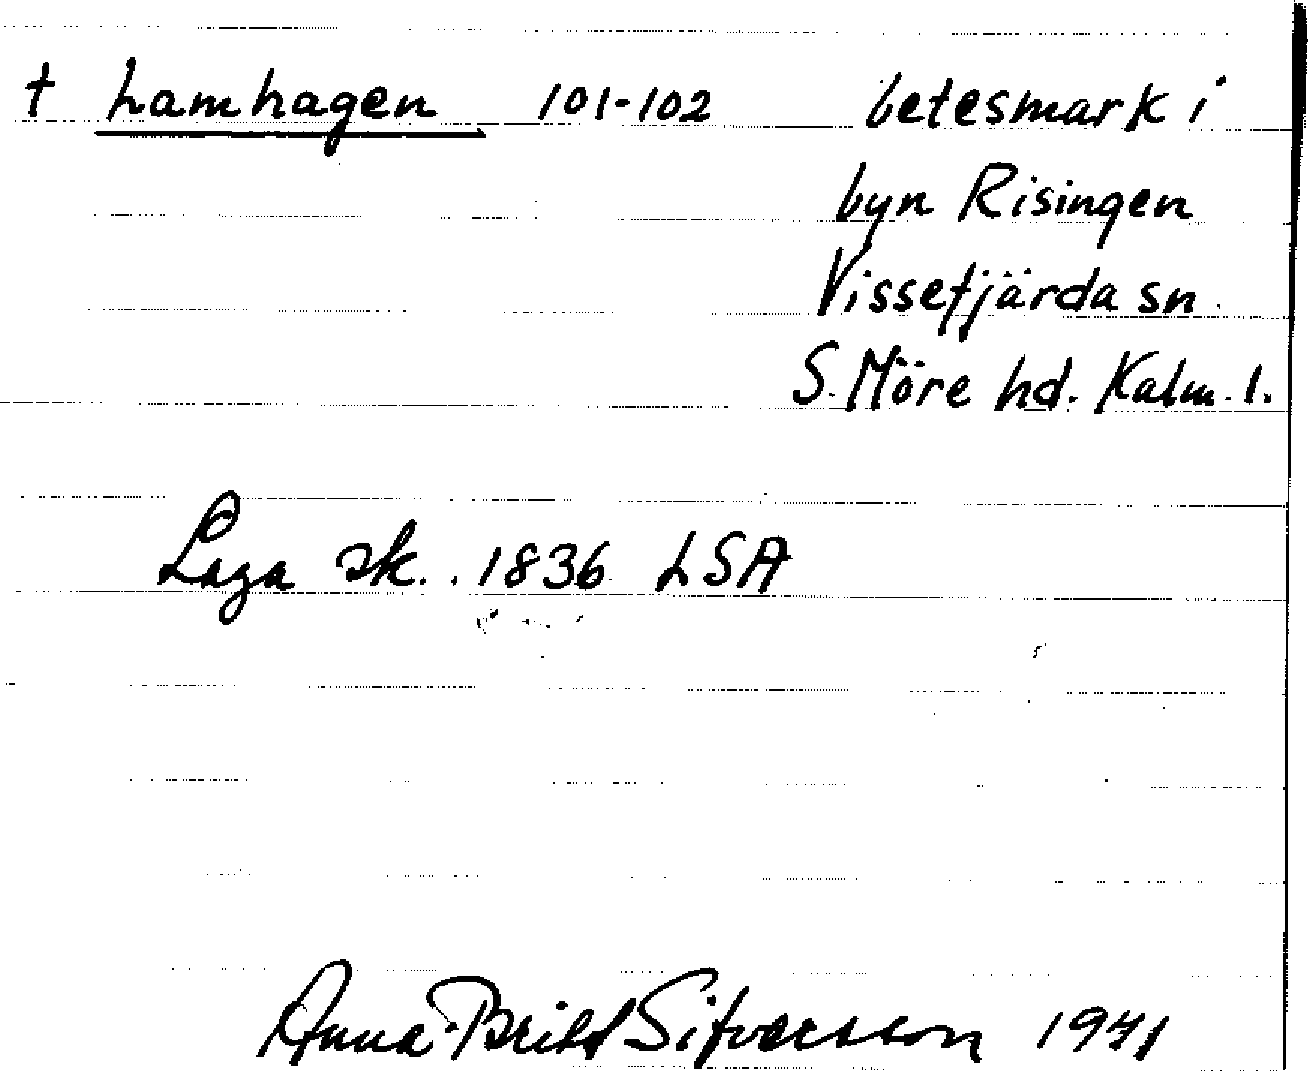 † Lamhagen 101-102 betesmark i
byn Risingen
Vissefjärda sn.
S. Möre hd. Kalm. l.
Laga sk. 1836 LSA
Anna-Britt Sifversson 1941